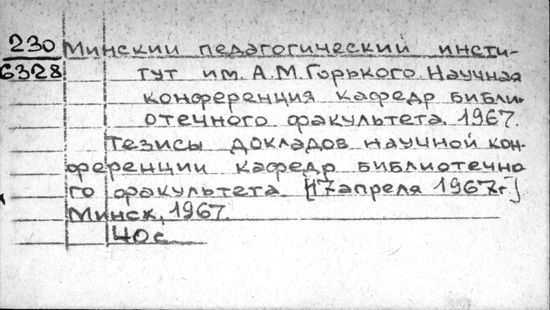 230 Минский педагогический инсти-
6328 тут им. А.М.Горького. Научная
конференция кафедр библи-
отечного факультета. 1967.
Тезисы докладов научной кон-
ференции кафедр библиотечно-
го факультета. [17 апреля 1967г.]
Минск, 1967.
40 с.